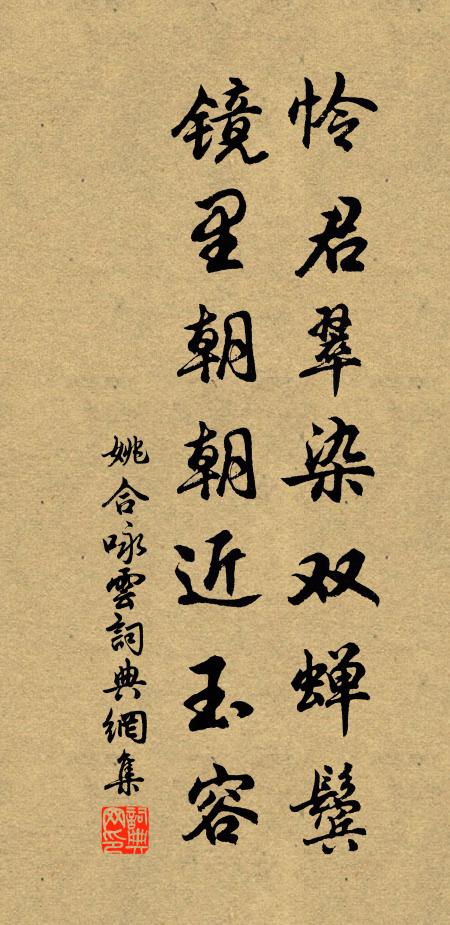 怜君翠染双蝉鬓
镜里朝朝近玉容
姚合咏雲詞典網集
詞典网印